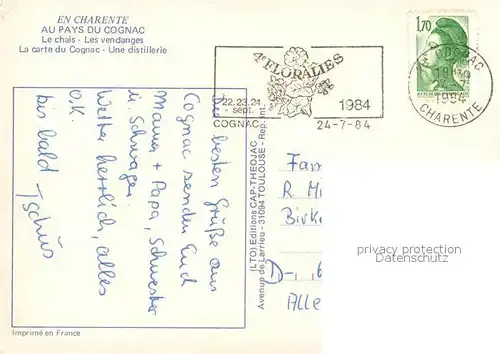 EN CHARENTE
AU PAYS DU COGNAC
Le chais - Les vendanges
La carte du Cognac - Une distillerie
4e FLORALIES
22.23.24
sept.
COGNAC
1984
24-7-84
1,70
COGNAC
1984
CHARENTE
Die besten Grüße aus
Cognac senden Euch
Mama + Papa, Schwester
u. Schwager.
Wetter herrlich, alles
O.K.
bis bald Tschüs
(LTO) Editions CAP-THEOJAC
Avenue de Larrieu - 31094 TOULOUSE - Rep. int.
Fam
R M
Birke
D-, 6
Alle
privacy protection
Datenschutz
Imprimé en France